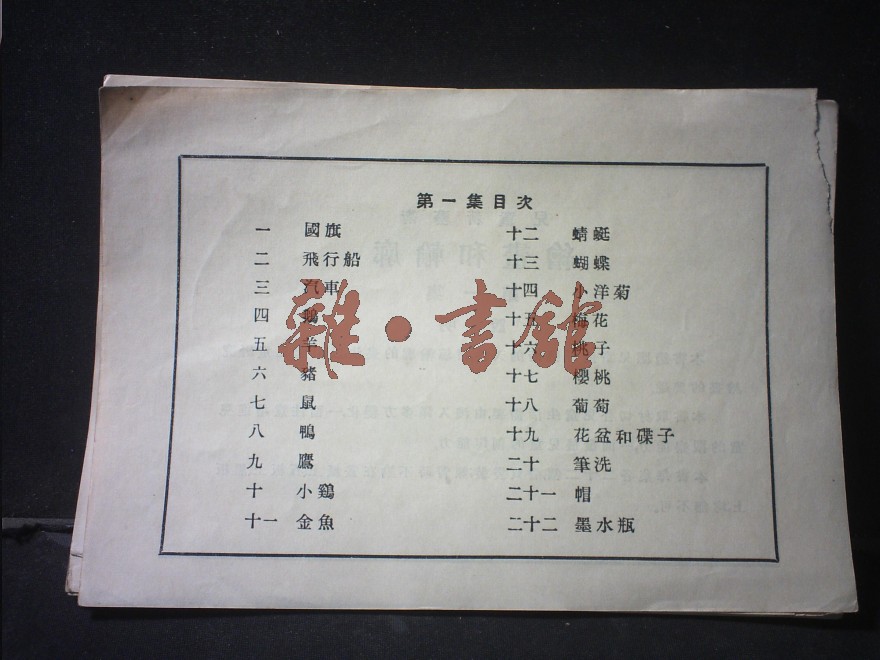 第一集目次
一 國旗
二 飛行船
三 汽車
四 鵝
五 羊
六 豬
七 鼠
八 鴨
九 鷹
十 小鷄
十一 金魚
十二 蜻蜓
十三 蝴蝶
十四 小洋菊
十五 梅花
十六 桃子
十七 櫻桃
十八 葡萄
十九 花盆和碟子
二十 筆洗
二十一 帽
二十二 墨水瓶
雜·書館